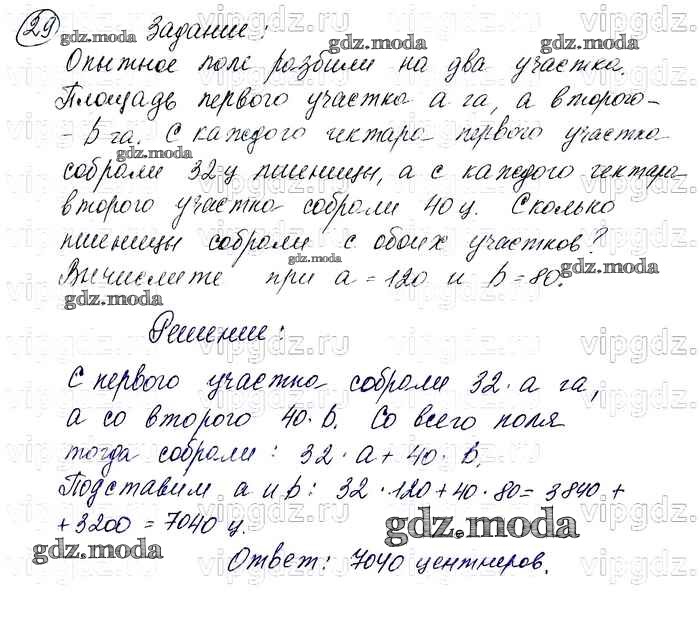 29 Задание:
Опытное поле разбили на два участка.
Площадь первого участка a га, а второго -
- b га. С каждого гектара первого участка
собрали 32 ц пшеницы, а с каждого гектара
второго участка собрали 40 ц. Сколько
пшеницы собрали с обоих участков?
Вычислите при a = 120 и b = 80.
Решение:
С первого участка собрали 32 · a га,
а со второго 40 · b. Со всего поля
тогда собрали: 32 · a + 40 · b.
Подставим a и b: 32 · 120 + 40 · 80 = 3840 +
+ 3200 = 7040 ц.
Ответ: 7040 центнеров.
gdz.moda
vipgdz.ru